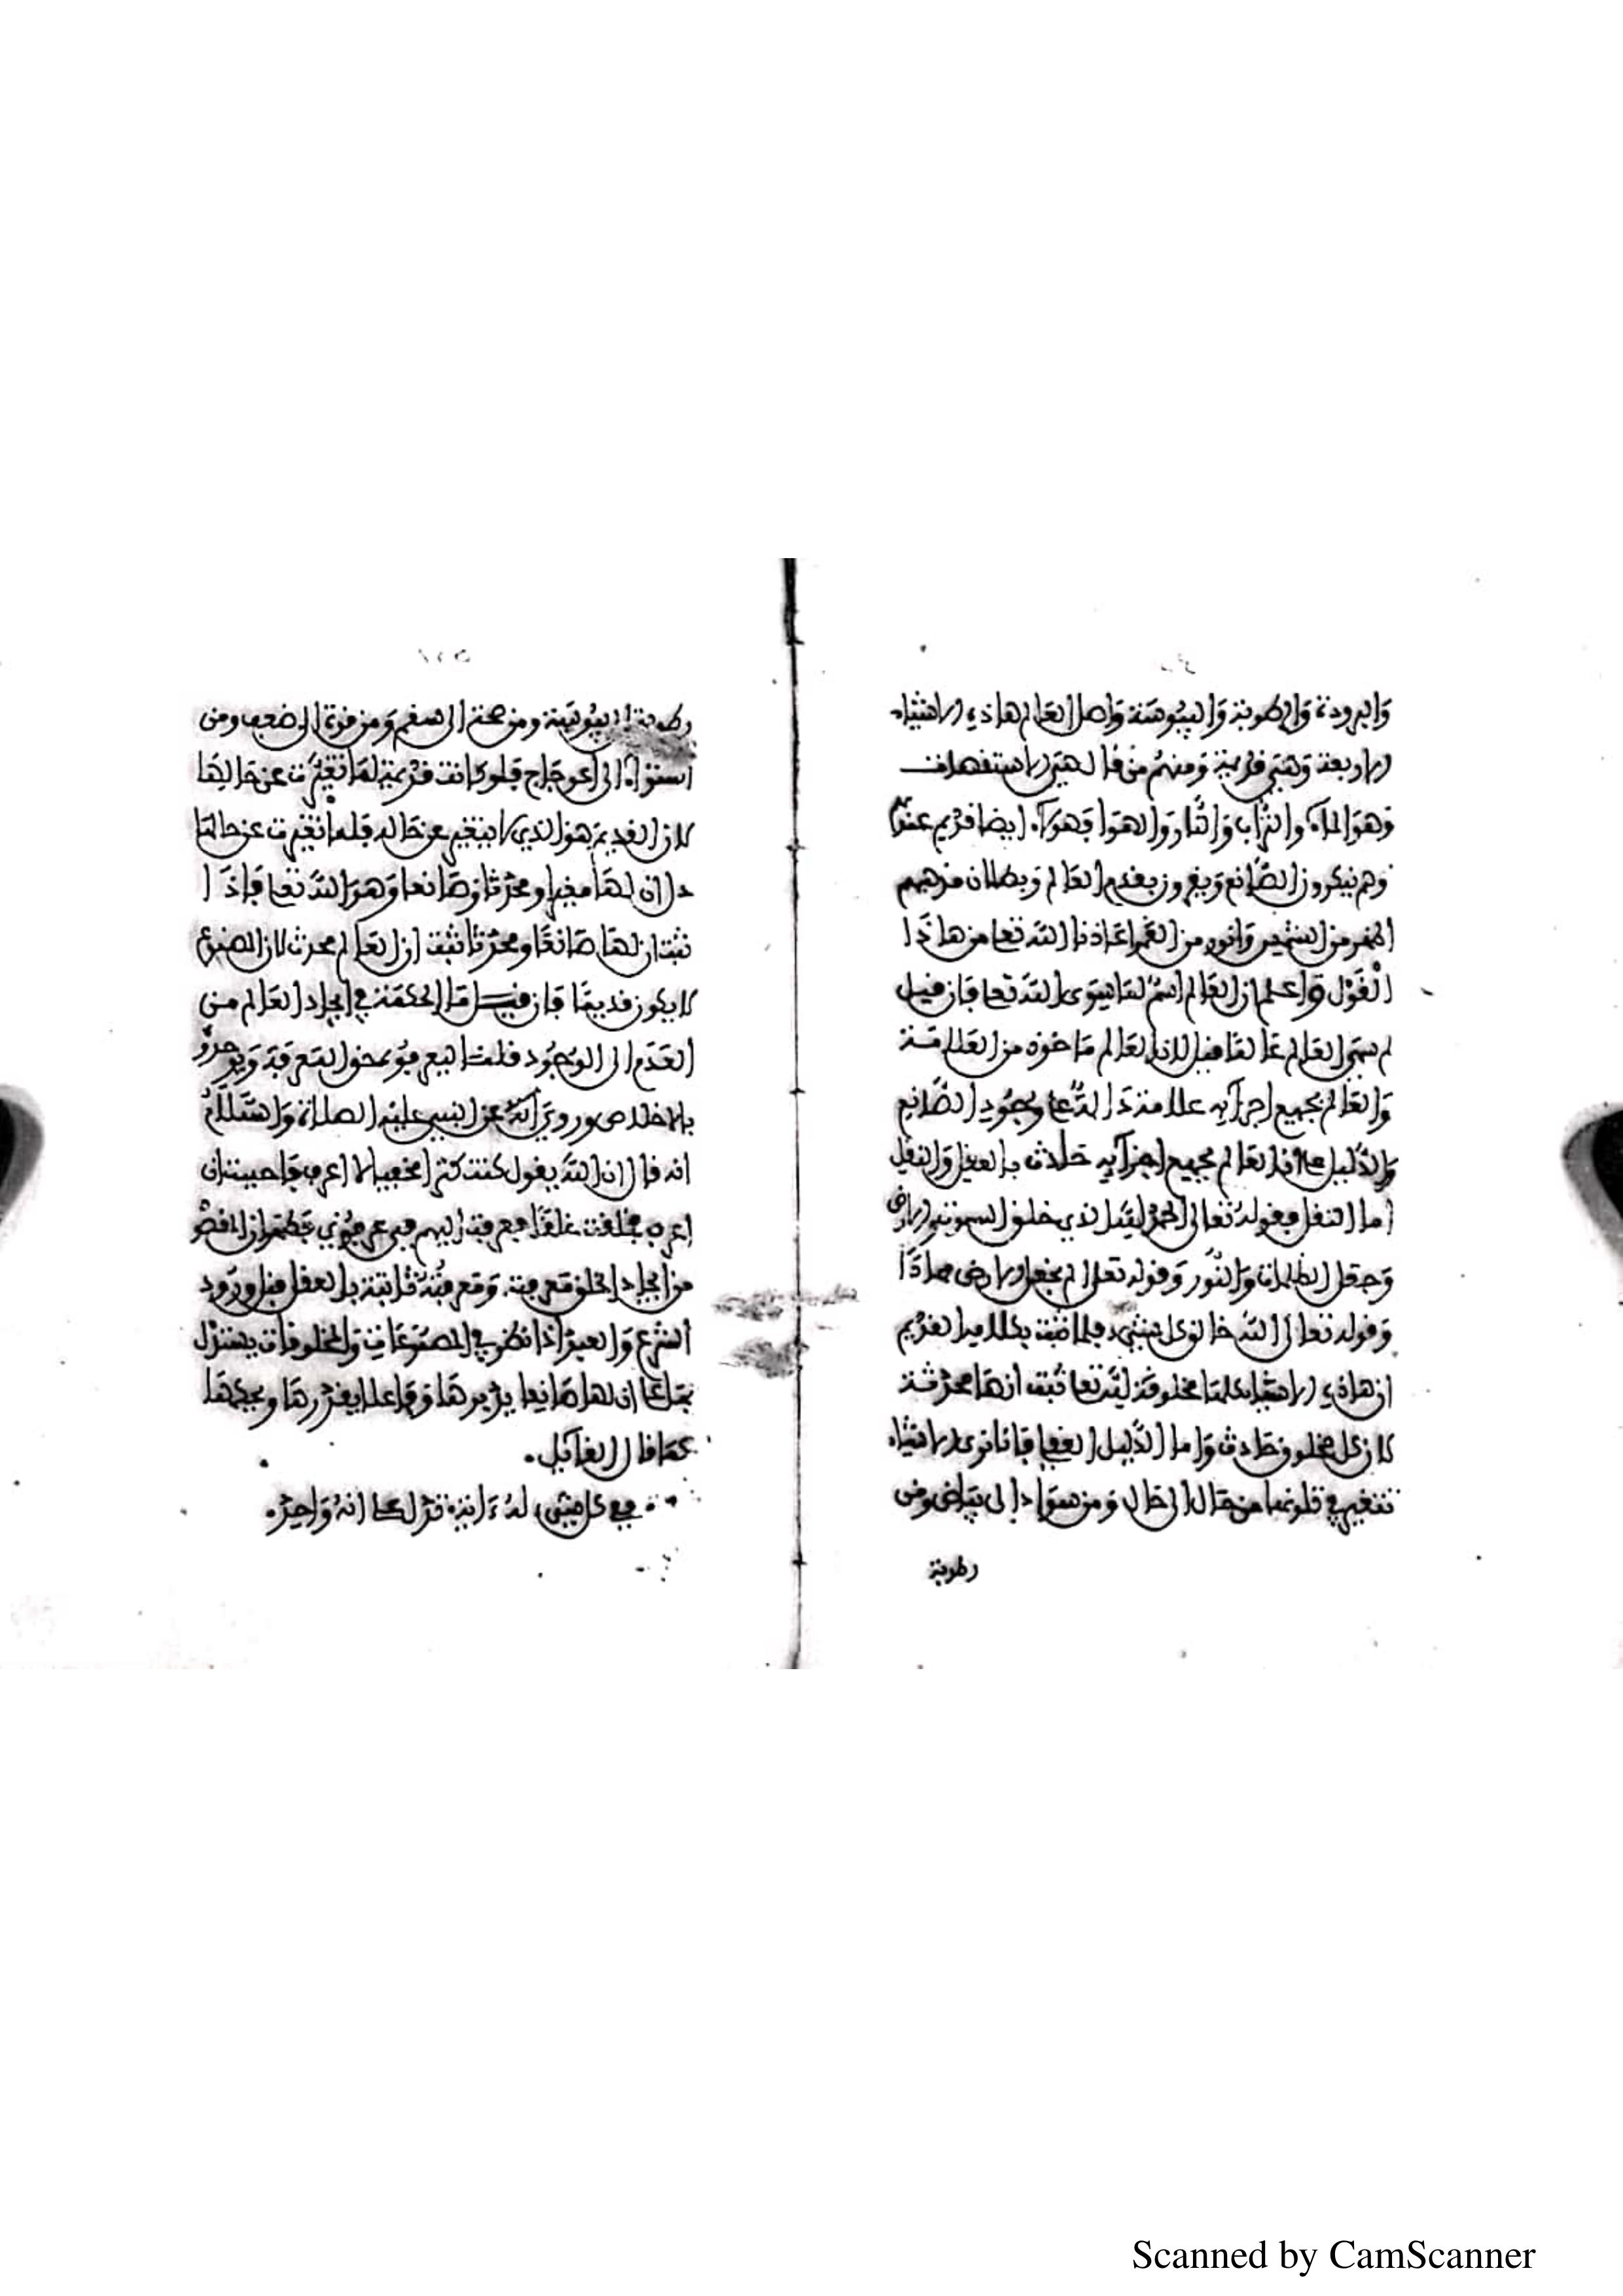 وَالبرودة وَالرطوبة وَاليبُوسَة وَاصل العَالم هاذه الاشياء
الاربعة وَهيَ قديمة وَمنهُم مَن قال هيَ الاستقصاف
وَهوَ المآء والتراب وَالنار وَالهوا فهوَآء ايضا قديم عندَ
وَهم ينكرون الصَّانع وَيقرون بقدم العَالم وَبطلان مذهبهم
اظهر من الشمس وَانور من القمر اعَاذنا اللّه تعا من هاذَا
القوْل وَاعلم ان العَالم اسمٌ لمَا سِوَى اللّه تعا فان قيل
لم سمي العَالم عَالمًا قيل لان العَالم مَاخوذ من العَلامَة
وَالعَالم بجميع اجزآيه علامة دَالة عا وجُودِ الصَّانِع
وَالدَّليل عا ان العَالم بجميع اجزآيه حَادث بالعقل وَالنقل
اما النقل فبقوله تعَالى الحمدُ لِلّه الذي خلق السموت والارض
وَجعَل الظلمات وَالنُّور وَقوله تعالى الم نجعل الارض مهادًا
وَقوله تعالى اللّه خالق كل شيء فلما ثبت بكلامه القديم
ان هاذه الاشياء كلها مخلوقة لِلّه تعا ثبت انها محدَثة
لان كل مخلوق حَادث وَاما الدَّليل العقلي فانا نرى الاشياء
تتغير في تلونها من حَال الى حَال وَمن سوَاد الى بَيَاض ومن
رطوبة
رطوبة الى يبُوسَة ومن صحة الى سقم وَمن قوة الى ضعف ومن
استوآء الى اعوجَاج فلو كانت قديمة لمَا تغيَّرت عن حَالِهَا
لان القديمَ هوَ الذي لا يتغير عن حَاله فلما تغيرت عن حالهَا
دل ان لهَا مغيرا ومحدثا وَصَانعا وَهوَ اللّه تعا فَاذَا
ثبت ان لهَا صَانعًا ومحدثا ثبت ان العَالم محدث لان المصنوع
لا يكون قديمًا فان قيل مَا الحكمَة في ايجاد العَالم من
العَدَم الى الوجُود قلت ليعرفوُه حق المَعرفة وَيوحدوُ
بالاخلاص وروي انهُ عن النبي عليْه الصلاة وَالسَّلامُ
انه قال ان اللّه يقول كنت كنزا مخفيا لا اعرف فاحببت ان
اعرف فخلقت خلقًا فعرفت اليهم فبي عرفوُني فظهر ان المقصُو
من ايجاد الخلق مَعرفته وَمعرفتُه ثابتة بالعقل قبل ورُود
الشرع وَالعبدُ اذا نظر في المصنوعَاتِ وَالمخلوقات يستدل
بهَا عَا ان لها صَانِعا يدبرهَا وَفَاعلا يقدرهَا ويحكمهَا
كمَا قال القآيل.
في كل شيْء لهُ ءَاية تدل عَا انهُ وَاحدٌ.
Scanned by CamScanner